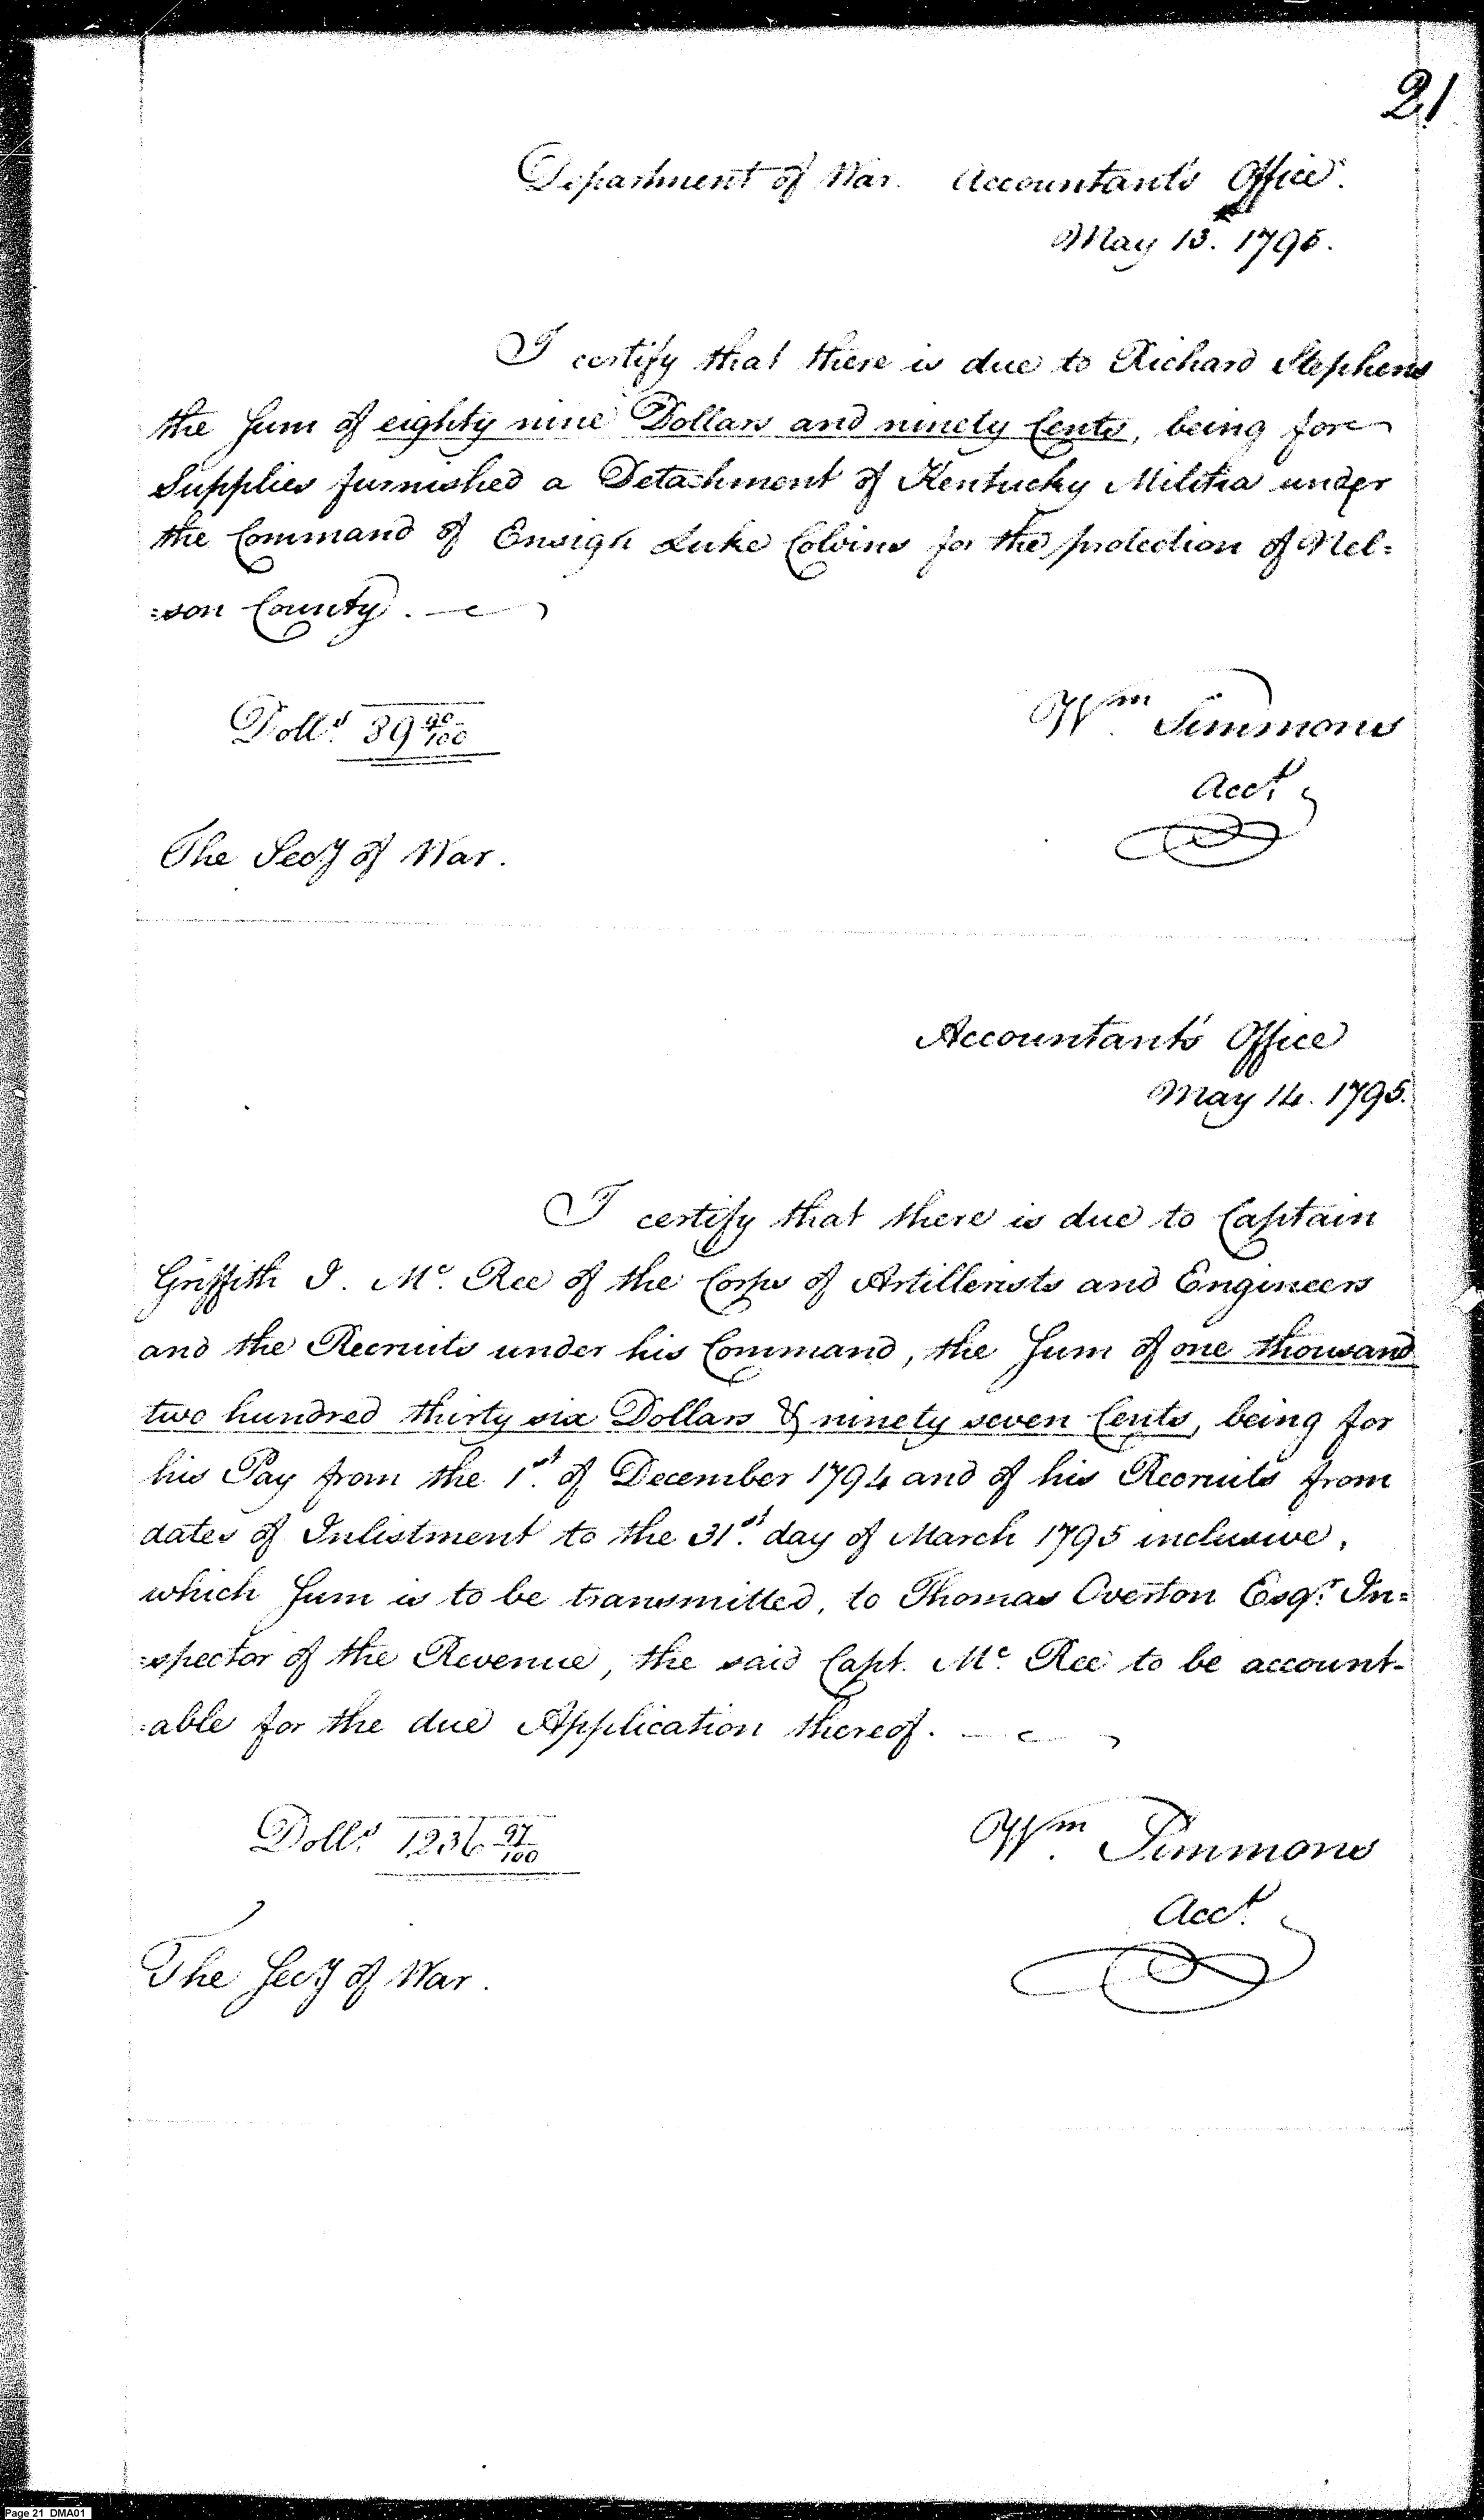 21
Department of War. Accountant's Office.
May 13. 1795.
I certify that there is due to Richard Stephens
the Sum of eighty nine Dollars and ninety Cents, being for
Supplies furnished a Detachment of Kentucky Militia under
the Command of Ensign Luke Colvins for the protection of Nel=
=son County.
Doll.s 89 90/100
Wm. Simmons
Acct.
The Secy of War.
Accountant's Office
May 14. 1795.
I certify that there is due to Captain
Griffith I. Mc. Ree of the Corps of Artillerists and Engineers
and the Recruits under his Command, the Sum of one thousand
two hundred thirty six Dollars & ninety seven Cents, being for
his Pay from the 1st. of December 1794 and of his Recruits from
dates of Inlistment to the 31st. day of March 1795 inclusive,
which Sum is to be transmitted, to Thomas Overton Esqr. In=
=spector of the Revenue, the said Capt. Mc. Ree to be account-
=able for the due Application thereof.
Doll.s 1236 97/100
Wm. Simmons
Acct.
The Secy of War.
Page 21 DMA01